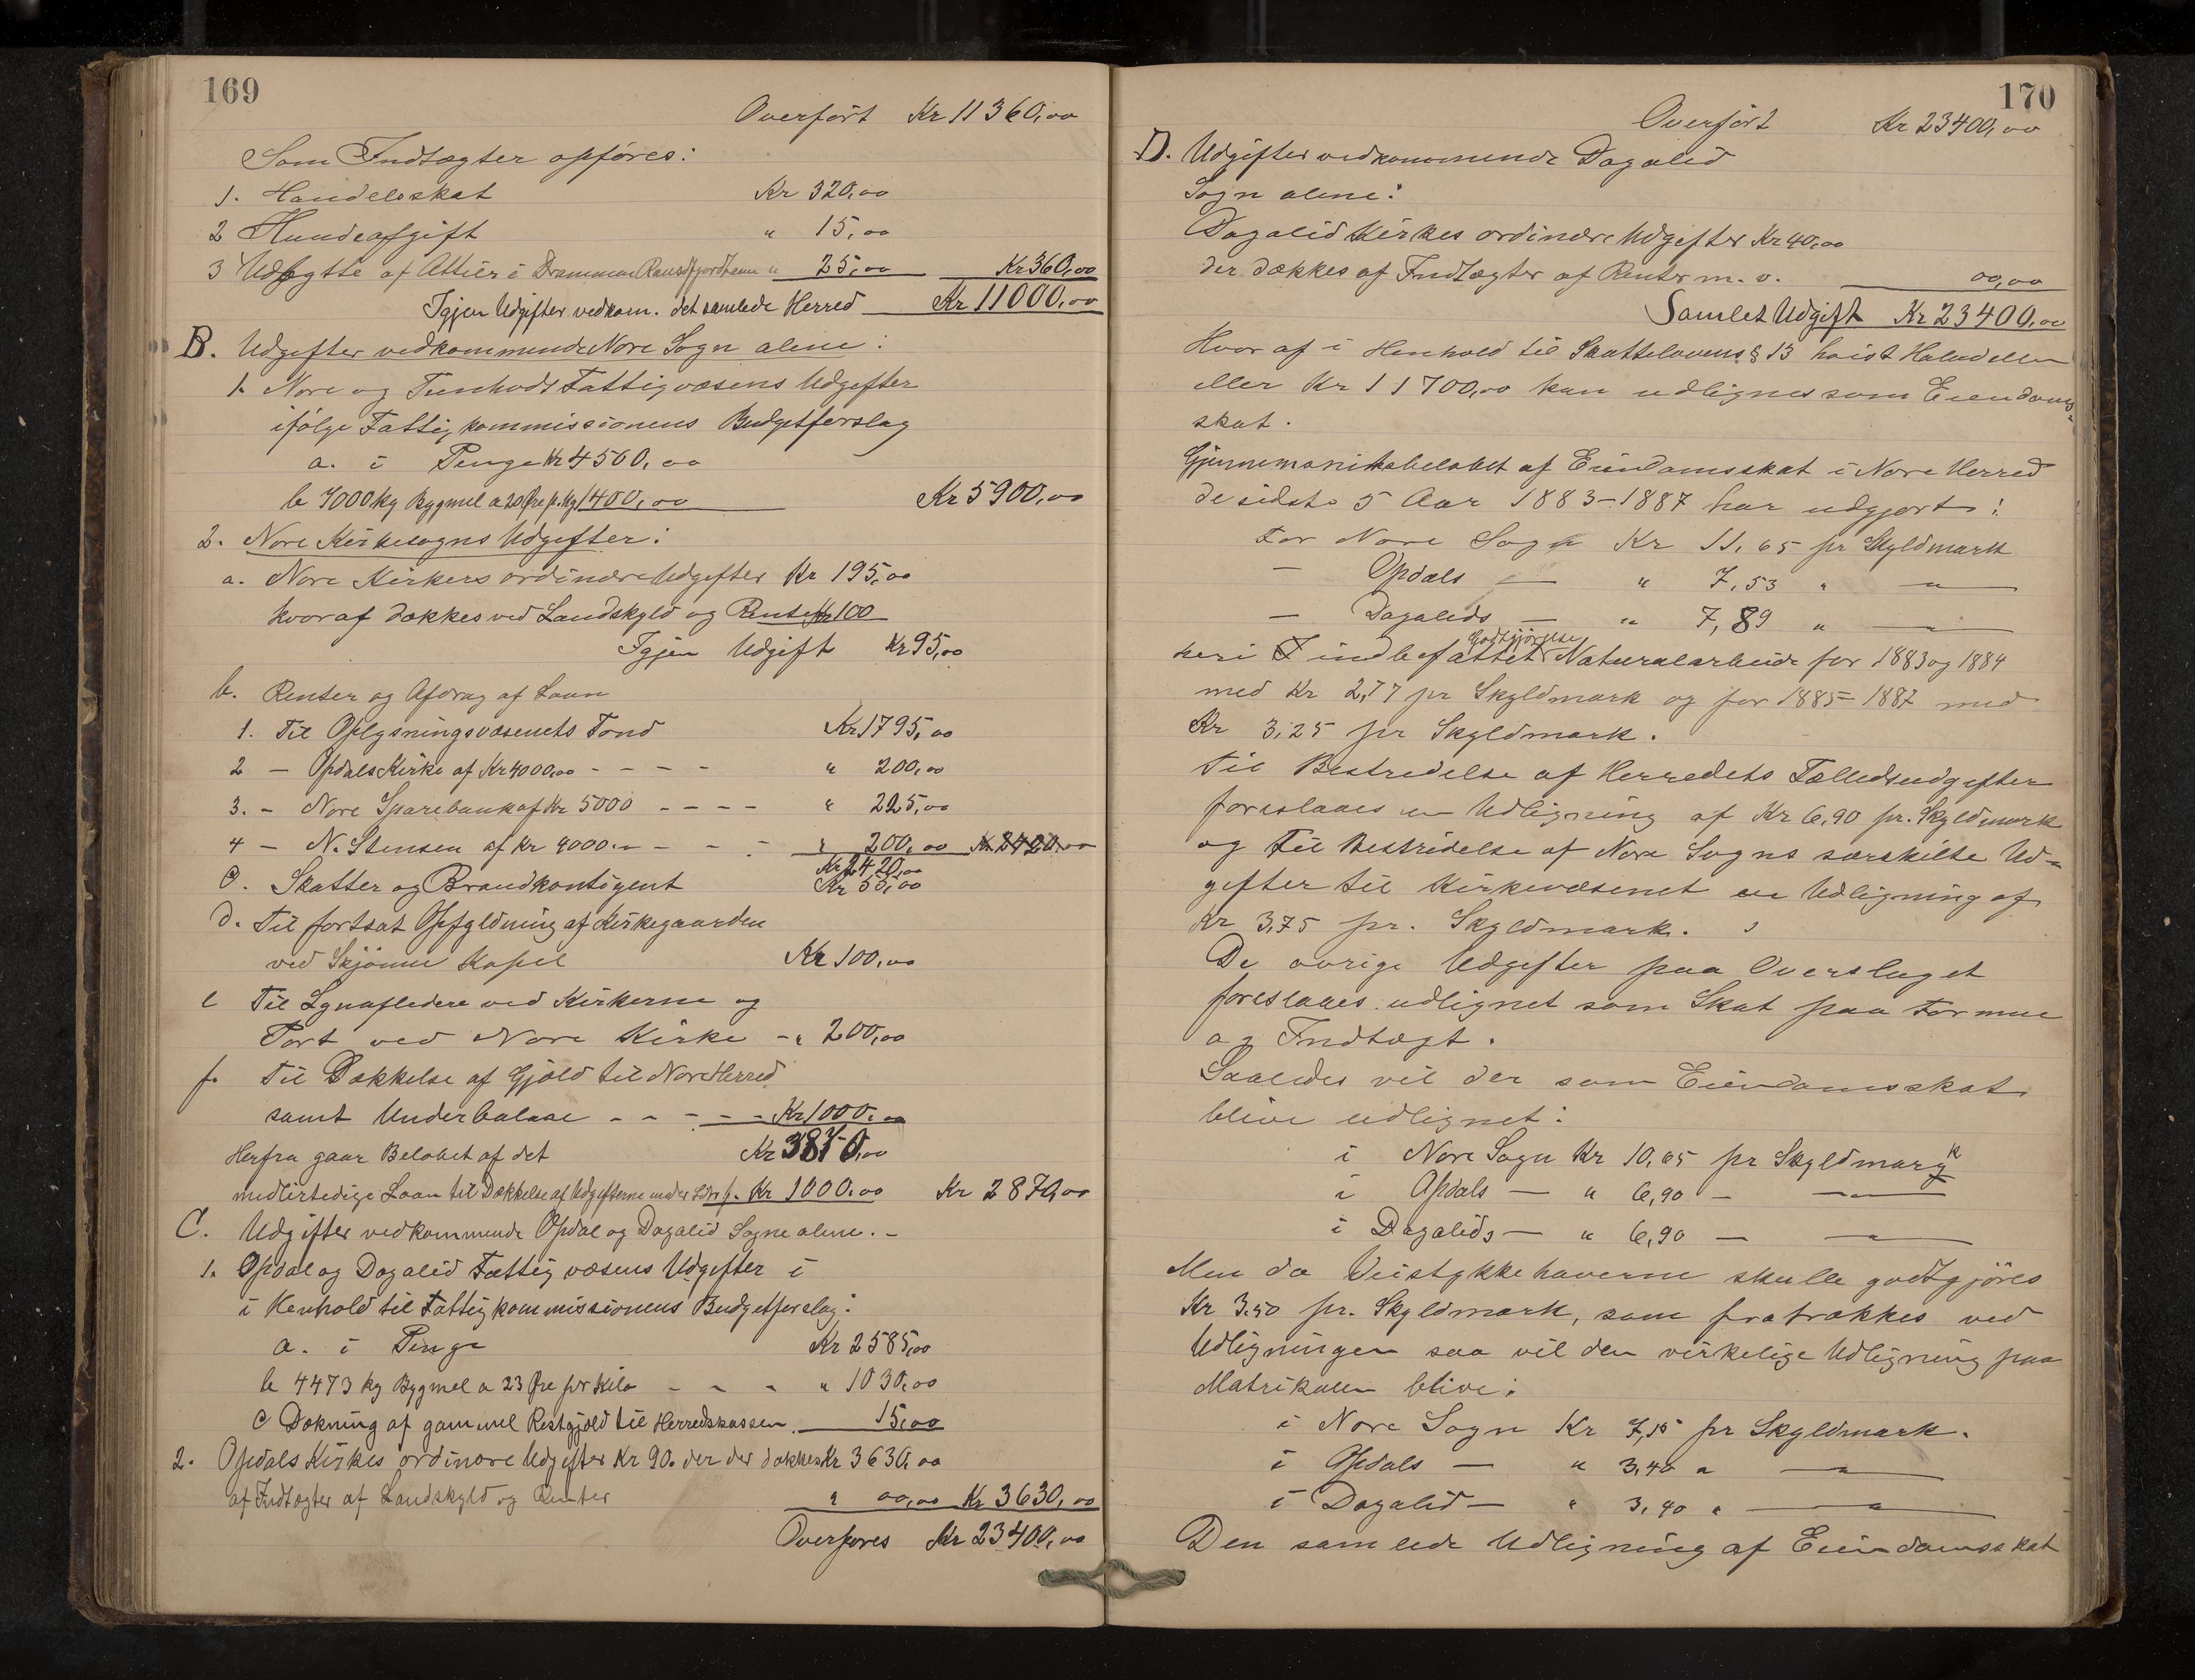 169
Overført Kr 11360,00
Som Indtægter opføres:
1. Handelsskat Kr 320,00
2 Hundeafgift " 15,00
3 Udbytte af Aktier i Drammen Randsfjordbanen " 25,00 Kr 360,00
Igjen Udgifter vedkom. det samlede Herred Kr 11000,00
B. Udgifter vedkommende Nore Sogn alene:
1. Nore og Tunhovds Fattigvæsens Udgifter
ifølge Fattigkommissionens Budgetforslag
a. i Penge Kr 4500,00
b 7000 kg Bygmel a 20 Øre p. Kg 1400,00 Kr 5900,00
2. Nore Kirkesogns Udgifter:
a. Nore Kirkers ordinære Udgifter Kr 195,00
hvoraf dækkes ved Landskyld og Rente Kr 100
Igjen Udgift Kr 95,00
b. Renter og Afdrag af Laan
1. Til Oplysningsvæsenets Fond Kr 1795,00
2 — Opdals Kirke af Kr 4000,00 - - - - " 200,00
3. - Nore Sparebank af Kr 5000 - - - - " 225,00
4 — N. Stensen af Kr 4000.- - - - " 200,00 Kr 2420,00
Kr 2420,00
c. Skatter og Brandkontigent Kr 55,00
d. Til fortsat Opfyldning af Kirkegaarden
ved Skjønne Kapel Kr 100,00
e Til Lynafledere ved Kirkerne og
Port ved Nore Kirke -" 200,00
f. Til Dækkelse af Gjæld til Nore Herred
samt Underbalase - - - - - Kr 1000,00
Herfra gaar Beløbet af det Kr 3870,00
midlertidige Laan til Dækkelse af Udgifterne under Litr f. Kr 1000,00 Kr 2870,00
C. Udgifter vedkommende Opdal og Dagalid Sogne alene. -
1. Opdal og Dagalid Fattigvæsens Udgifter i
i Henhold til Fattigkommissionens Budgetforslag:
a. i Penge Kr 2585,00
b 4473 kg Bygmel a 23 Øre pr Kilo - - - " 1030,00
c Dækning af gammel Restgjæld til Herredskassen. 15,00
2. Opdals Kirkes ordinære Udgifter Kr 90. der der dækkes Kr 3630,00
af Indtægter af Landskyld og Renter " 00,00 Kr 3630,00
Overføres Kr 23400,00
170
Overført Kr 23400,00
D. Udgifter vedkommende Dagalid
Sogn alene:
Dagalid Kirkes ordinære Udgifter Kr 40,00
der dækkes af Indtægter af Renter m. v. 00,00
Samlet Udgift Kr 23400,00
Hvoraf i Henhold til Skattelovens § 13 høist Halvdelen
eller Kr 11700,00 kan udlignes som Eiendoms-
skat.
Gjennemsnitsbeløbet af Eiendomsskat i Nore Herred
de sidste 5 Aar 1883-1887 har udgjort:
For Nore Sogn Kr 11,65 pr Skyldmark
— Opdals — " 7,53 " — " —
— Dagalids — " 7,89 " — " —
heri indbefattet Godtgjørelse Naturalarbeide for 1883 og 1884
med Kr 2,77 pr Skyldmark og for 1885-1887 med
Kr 3,25 pr Skyldmark.
Til Bestridelse af Herredets Fællesudgifter
foreslaaes en Udligning af Kr 6,90 pr. Skyldmark
og til Bestridelse af Nore Sogns særskilte Ud-
gifter til Kirkevæsenet en Udligning af
Kr 3,75 pr. Skyldmark.
De øvrige Udgifter paa Overslaget
foreslaaes udlignet som Skat paa Formue
og Indtægt.
Saaledes vil der som Eiendomsskat
blive udlignet:
i Nore Sogn Kr 10,65 pr Skyldmark
i Opdals — " 6,90 — — " —
i Dagalids — " 6,90 — — " —
Men da Veistykkehaverne skulle godtgjøres
Kr 3.50 pr. Skyldmark, som fratrækkes ved
Udligningen saa vil den virkelige Udligning paa
Matrikulen blive:
i Nore Sogn Kr 7,15 pr Skyldmark.
i Opdals — " 3,40 " — " —
i Dagalid — " 3,40 " — " —
Den samlede Udligning af Eiendomsskat